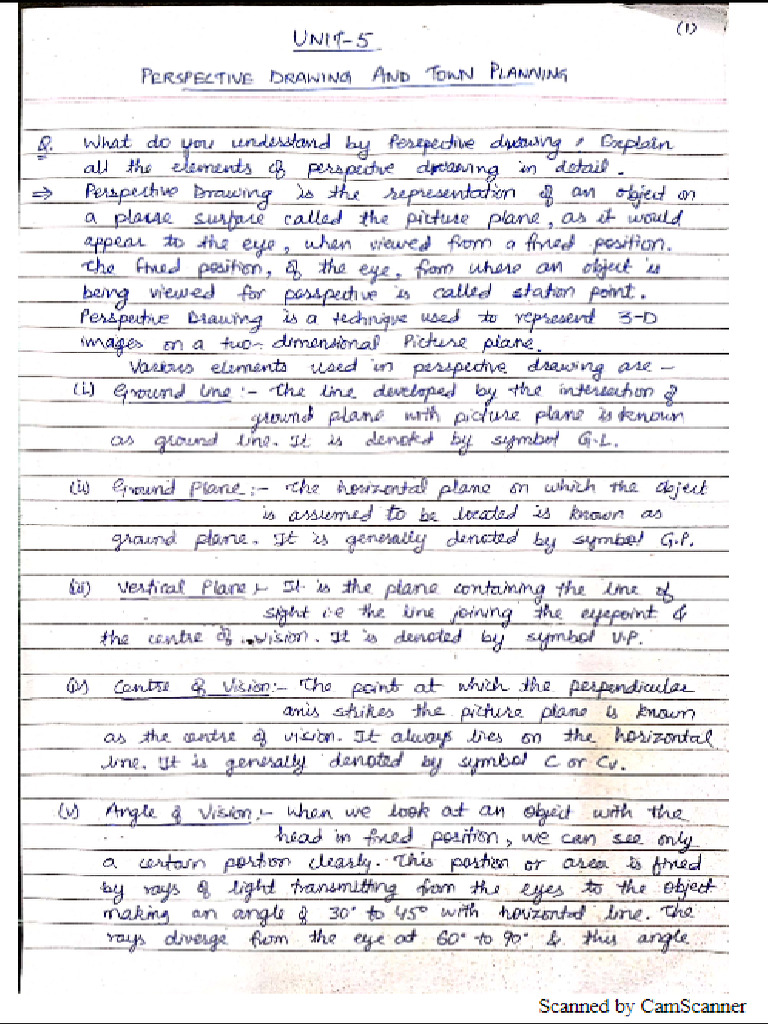 (1)
UNIT-5
PERSPECTIVE DRAWING AND TOWN PLANNING
Q. What do you understand by Perspective drawing, Explain
all the elements of perspective drawing in detail.
⇒ Perspective Drawing is the representation of an object on
a plane surface called the picture plane, as it would
appear to the eye, when viewed from a fixed position.
The fixed position, of the eye, from where an object is
being viewed for perspective is called station point.
Perspective Drawing is a technique used to represent 3-D
images on a two-dimensional Picture plane.
Various elements used in perspective drawing are -
(i) Ground line :- The line developed by the intersection of
ground plane with picture plane is known
as ground line. It is denoted by symbol G.L.
(ii) Ground Plane :- The horizontal plane on which the object
is assumed to be located is known as
ground plane. It is generally denoted by symbol G.P.
(iii) Vertical Plane :- It is the plane containing the line of
sight i.e the line joining the eyepoint &
the centre of vision. It is denoted by symbol V.P.
(iv) Centre of Vision :- The point at which the perpendicular
axis strikes the picture plane is known
as the centre of vision. It always lies on the horizontal
line. It is generally denoted by symbol C or Cv.
(v) Angle of Vision :- When we look at an object with the
head in fixed position, we can see only
a certain portion clearly. This portion or area is fixed
by rays of light transmitting from the eyes to the object
making an angle of 30° to 45° with horizontal line. The
rays diverge from the eye at 60° to 90° & this angle
Scanned by CamScanner